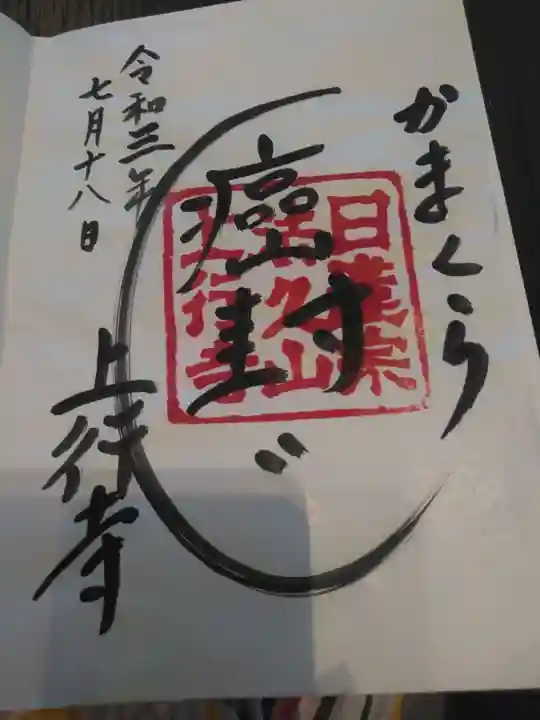 かまくら
癌封じ
日蓮宗
久山
上行寺
令和三年
七月十八日
上行寺